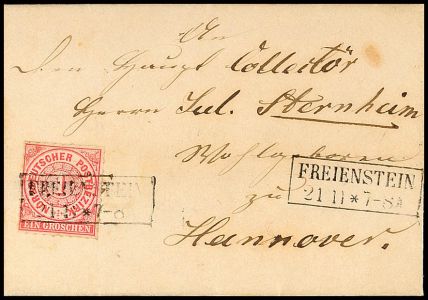 An
Den Haupt Collector
Herrn Jul. Sternheim
Wohlgeboren
zu
Hannover.
NORDDEUTSCHER POSTBEZIRK
EIN GROSCHEN
FREIENSTEIN
* 7-8
FREIENSTEIN
21 11 * 7-8A